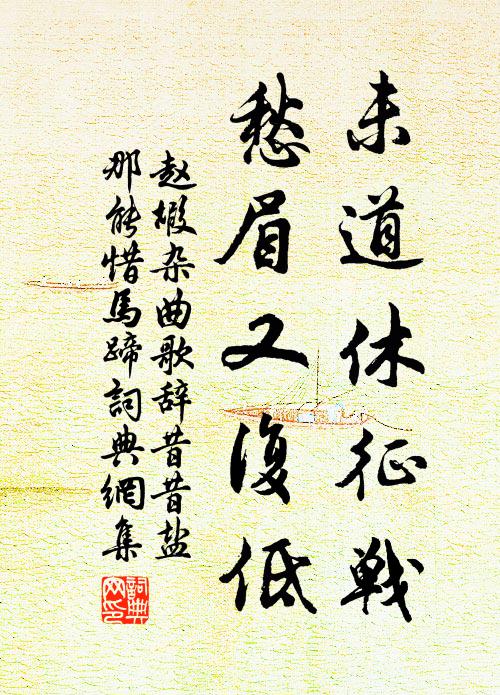 未道休征戰
愁眉又復低
赵嘏杂曲歌辞昔昔盐
那能惜馬蹄詞典網集
詞典網印